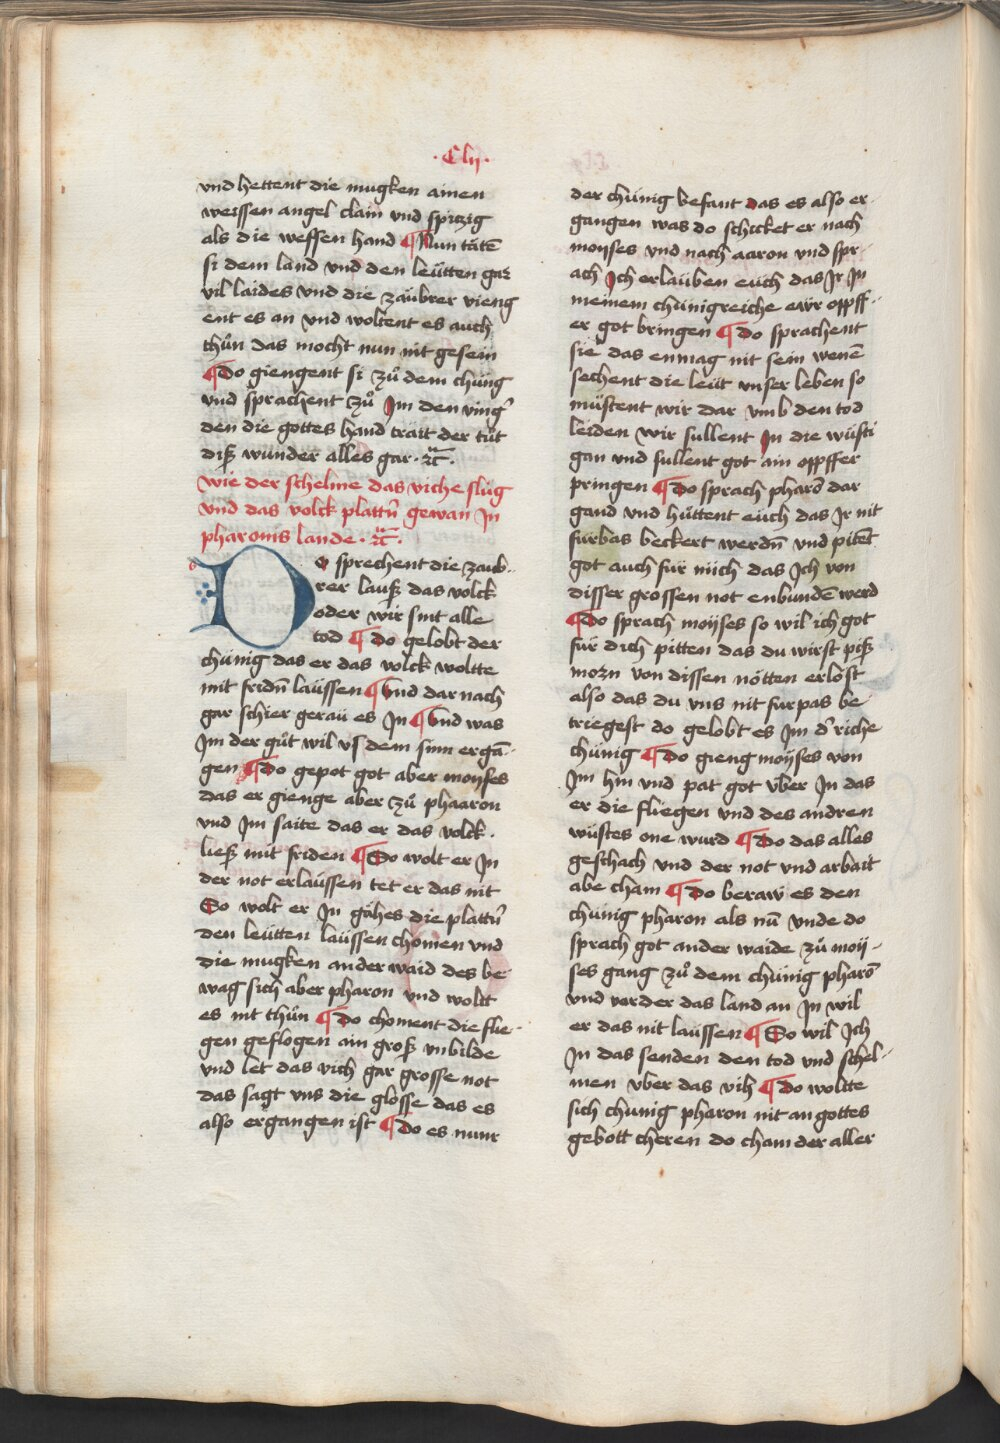 ·Clij·
vnd hettent die mugken ainen
weissen angel clain vnd spitzig
als die weffen hand ¶ Nun tätē
si dem land vnd den leütten gar
vil laides vnd die zaubrer vieng
ent es an vnd woltent es auch
thůn das mocht nun nit gesein
¶ Do giengent si zů dem chüng
vnd sprachent zů Im den ving̕
den die gottes hand trait der tůt
diß wunder alles gar · ꝛc̈ ·
wie der schelme das viche slůg
vnd das volck plattn̄ gewan In
pharonis lande · ꝛc̈ ·
Do sprechent die zaub-
rer lauß das volck
oder wir sint alle
tod ¶ Do gelobt der
chünig das er das volck woltte
mit fridn̄ laussen ¶ Vnd dar nach
gar schier geraü es In ¶ Vnd was
Im der gůt wil vs dem sinn ergā-
gen ¶ Do gepot got aber moyses
das er gienge aber zů phaaron
vnd Im saite das er das volck ·
ließ mit friden ¶ Do wolt er In
der not erlaussen tet er das nit
So wolt er In gähes die plattn̄
den leütten laussen chomen vnd
die mugken ander waid des be-
wag sich aber pharon vnd wollt
es nit thůn ¶ Do choment die flie-
gen geflogen ain groß vnbilde
vnd let das vich gar grosse not
das sagt vns die glosse das es
also ergangen ist ¶ Do es nunr
der chünig befant das es also er-
gangen was do schicket er nach
moyses vnd nach aaron vnd spr-
ach Ich erlauben euch das Ir In
meinem chünigreiche ewr oppff-
er got bringen ¶ Do sprachent
sie das enmag nit sein wenē
sechent die leüt vnser leben so
müstent wir dar vmb den tod
leiden wir sullent In die wüsti
gan vnd sullent got ain oppffer
pringen ¶ Do sprach pharō dar
gand vnd hüttent euch das Ir nit
furbas beckert werdn̄ vnd pitēt
got auch fur mich das Ich von
disser grossen not enbundē werd
¶ Do sprach moyses so wil ich got
für dich pitten das du wirst piß
morn von dissen nötten erlöst
also das du vns nit furpas be-
triegest do gelobt es Im d̕ riche
chünig ¶ Do gieng moyses von
Im hin vnd pat got vber In das
er die fliegen vnd des andren
wüstes one wurd ¶ Do das alles
geschach vnd der not vnd arbait
abe cham ¶ Do beraw es den
chünig pharon als nū vnde do
sprach got ander waide zů moy-
ses gang zů dem chünig pharō
vnd vorder das land an In wil
er das nit laussen ¶ So wil Ich
In das senden den tod vnd schel-
men vber das vih ¶ Do woltte
sich chunig pharon nit an gottes
gebott cheren do cham der aller